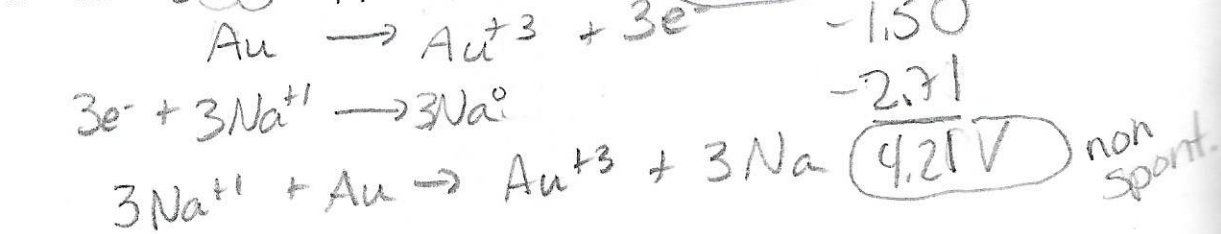 Au → Au⁺³ + 3e⁻ -1.50
3e⁻ + 3Na⁺¹ → 3Na° -2.71
3Na⁺¹ + Au → Au⁺³ + 3Na 4.21V non spont.